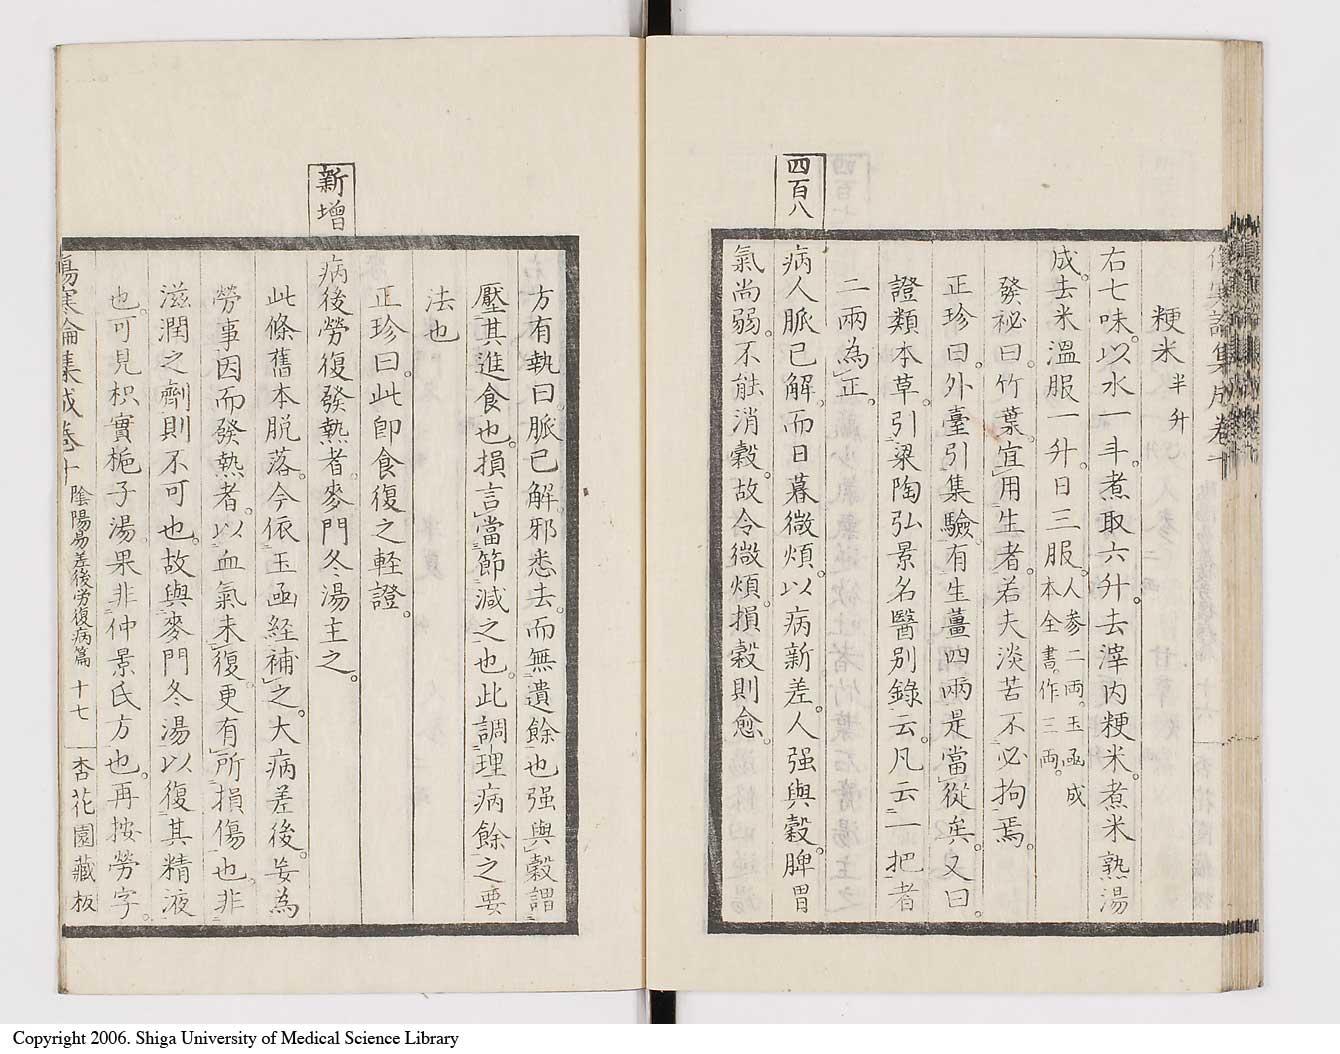 傷寒論集成卷十
粳米半升
右七味。以水一斗。煮取六升。去滓內粳米。煮米熟湯
成。去米溫服一升。日三服。人參二兩。玉函成本全書。作三兩。
發祕曰。竹葉。宜用生者。若夫淡苦不必拘焉。
正珍曰。外臺引集驗。有生薑四兩是當從矣。又曰。
證類本草。引梁陶弘景名醫別錄云。凡云一把者
二兩為正。
四百八
病人脈已解。而日暮微煩。以病新差。人强與穀。脾胃
氣尚弱。不能消穀。故令微煩。損穀則愈。
方有執曰。脈已解。邪悉去。而無遺餘也强與穀謂
壓其進食也。損言當節減之也。此調理病餘之要
法也
正珍曰。此卽食復之輕證。
新增
病後勞復發熱者。麥門冬湯主之。
此條舊本脫落。今依玉函経補之。大病差後。妄為
勞事因而發熱者。以血氣未復更有所損傷也。非
滋潤之劑則不可也。故與麥門冬湯以復其精液
也。可見枳實梔子湯。果非仲景氏方也。再按勞字。
傷寒論集成卷十 陰陽易差後労復病篇 十七 杏花園藏板
Copyright 2006. Shiga University of Medical Science Library